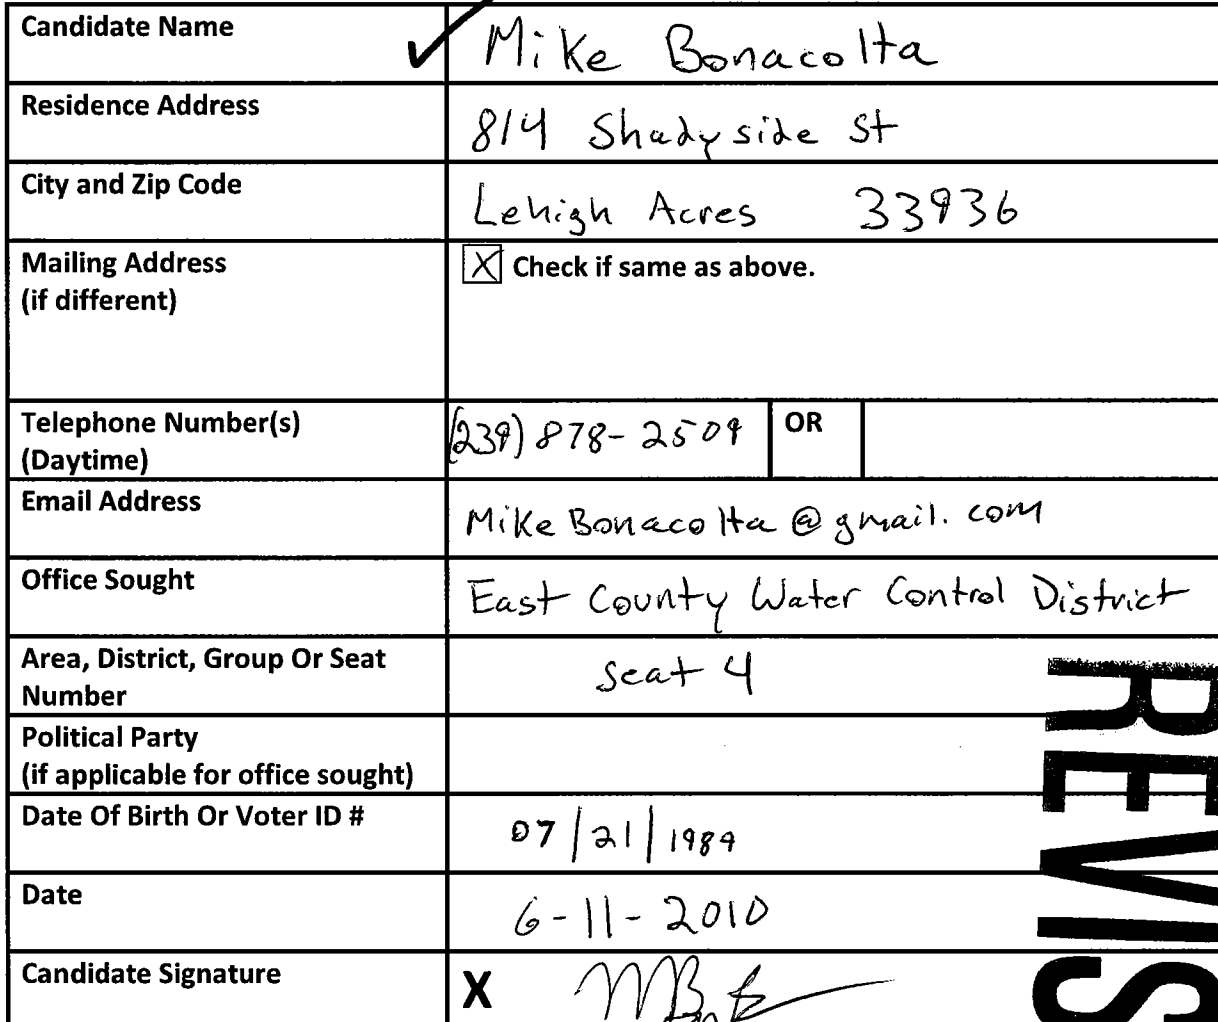 Candidate Name Mike Bonacolta
Residence Address 814 Shadyside St
City and Zip Code Lehigh Acres 33936
Mailing Address
(if different)
X Check if same as above.
Telephone Number(s)
(Daytime)
(239) 878-2509 OR
Email Address MikeBonacolta@gmail.com
Office Sought East County Water Control District
Area, District, Group Or Seat
Number
Seat 4
Political Party
(if applicable for office sought)
Date Of Birth Or Voter ID # 07/21/1989
Date 6-11-2010
Candidate Signature X
REVIS